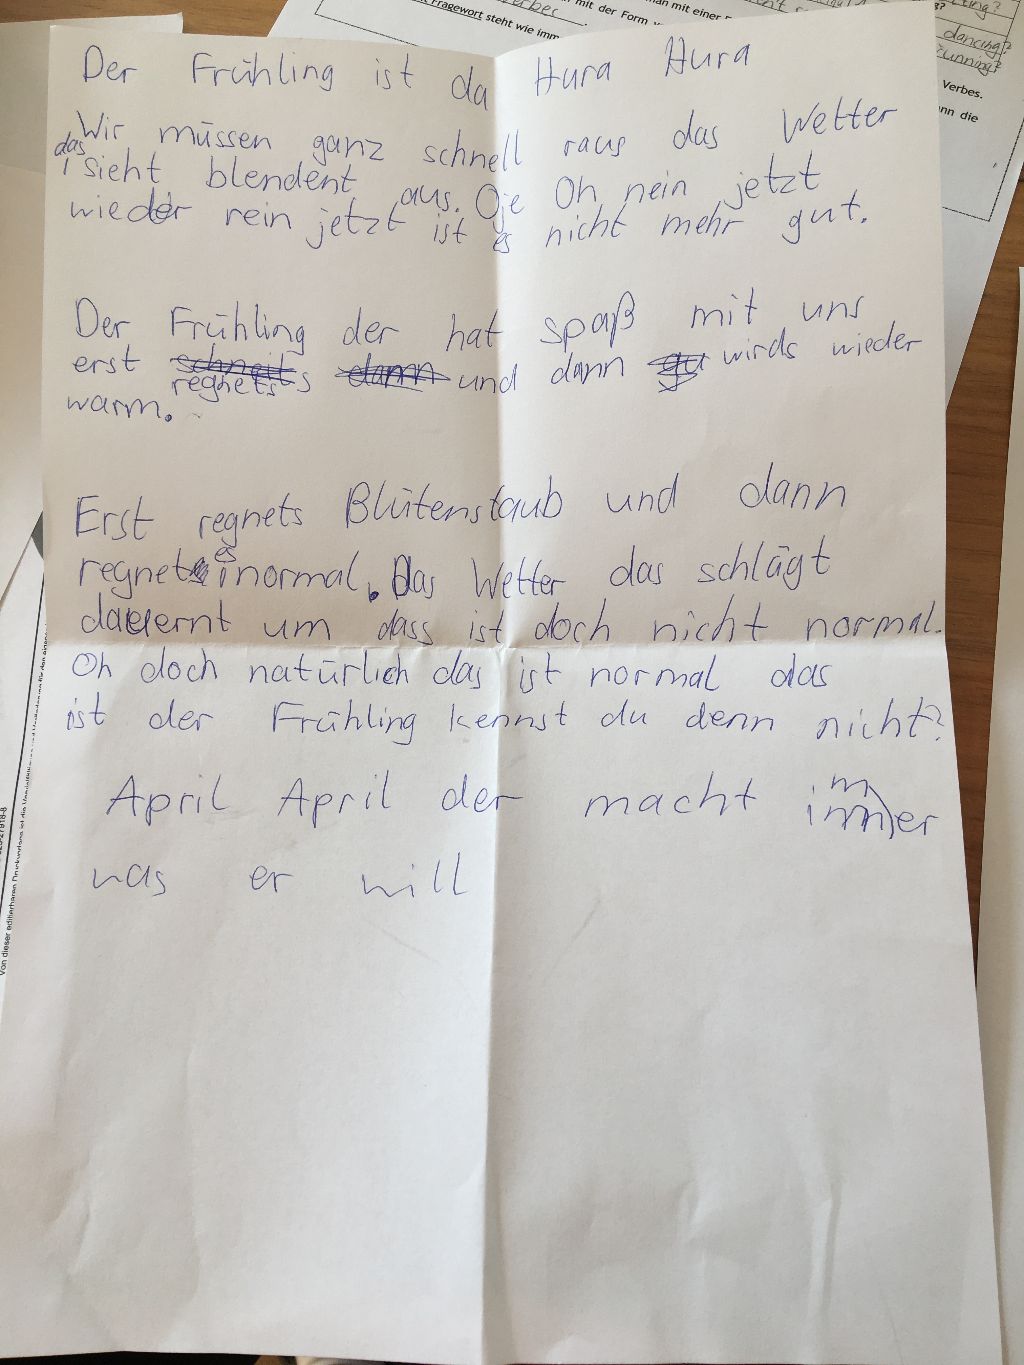 Der Frühling ist da Hura Hura
Wir müssen ganz schnell raus das Wetter
das sieht blendent aus. Oje Oh nein jetzt
wieder rein jetzt ist es nicht mehr gut.
Der Frühling der hat spaß mit uns
erst regnets und dann wirds wieder
warm.
Erst regnets Blütenstaub und dann
regnet es normal. Das Wetter das schlägt
dauernt um dass ist doch nicht normal.
Oh doch natürlich das ist normal das
ist der Frühling kennst du denn nicht?
April April der macht immer
was er will
Fragewort steht wie
mit der Form
dancing?
running?
Verbes.
die